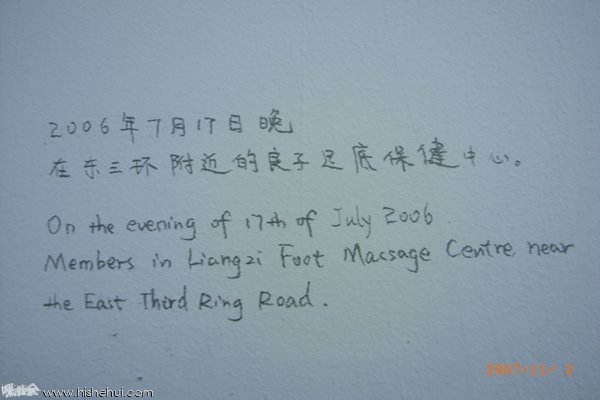 2006年7月17日晚
在东三环附近的良子足底保健中心。
On the evening of 17th of July 2006
Members in Liangzi Foot Massage Centre, near
the East Third Ring Road.
www.hishehui.com